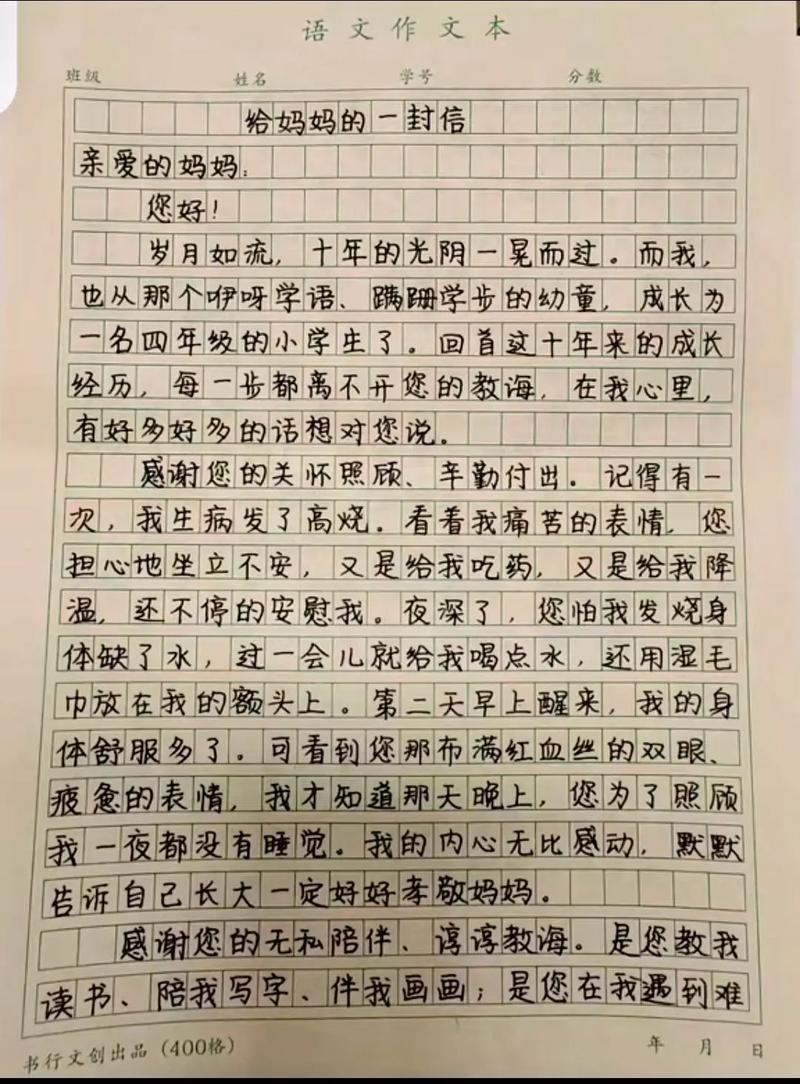 语文作文本
班级 姓名 学号 分数
给妈妈的一封信
亲爱的妈妈：
您好！
岁月如流，十年的光阴一晃而过。而我，
也从那个咿呀学语、蹒跚学步的幼童，成长为
一名四年级的小学生了。回首这十年来的成长
经历，每一步都离不开您的教诲，在我心里，
有好多好多的话想对您说。
感谢您的关怀照顾、辛勤付出。记得有一
次，我生病发了高烧。看着我痛苦的表情，您
担心地坐立不安，又是给我吃药，又是给我降
温，还不停的安慰我。夜深了，您怕我发烧身
体缺了水，过一会儿就给我喝点水，还用湿毛
巾放在我的额头上。第二天早上醒来，我的身
体舒服多了。可看到您那布满红血丝的双眼、
疲惫的表情，我才知道那天晚上，您为了照顾
我一夜都没有睡觉。我的内心无比感动，默默
告诉自己长大一定好好孝敬妈妈。
感谢您的无私陪伴、谆谆教诲。是您教我
读书、陪我写字、伴我画画；是您在我遇到难
书行文创出品（400格） 年 月 日